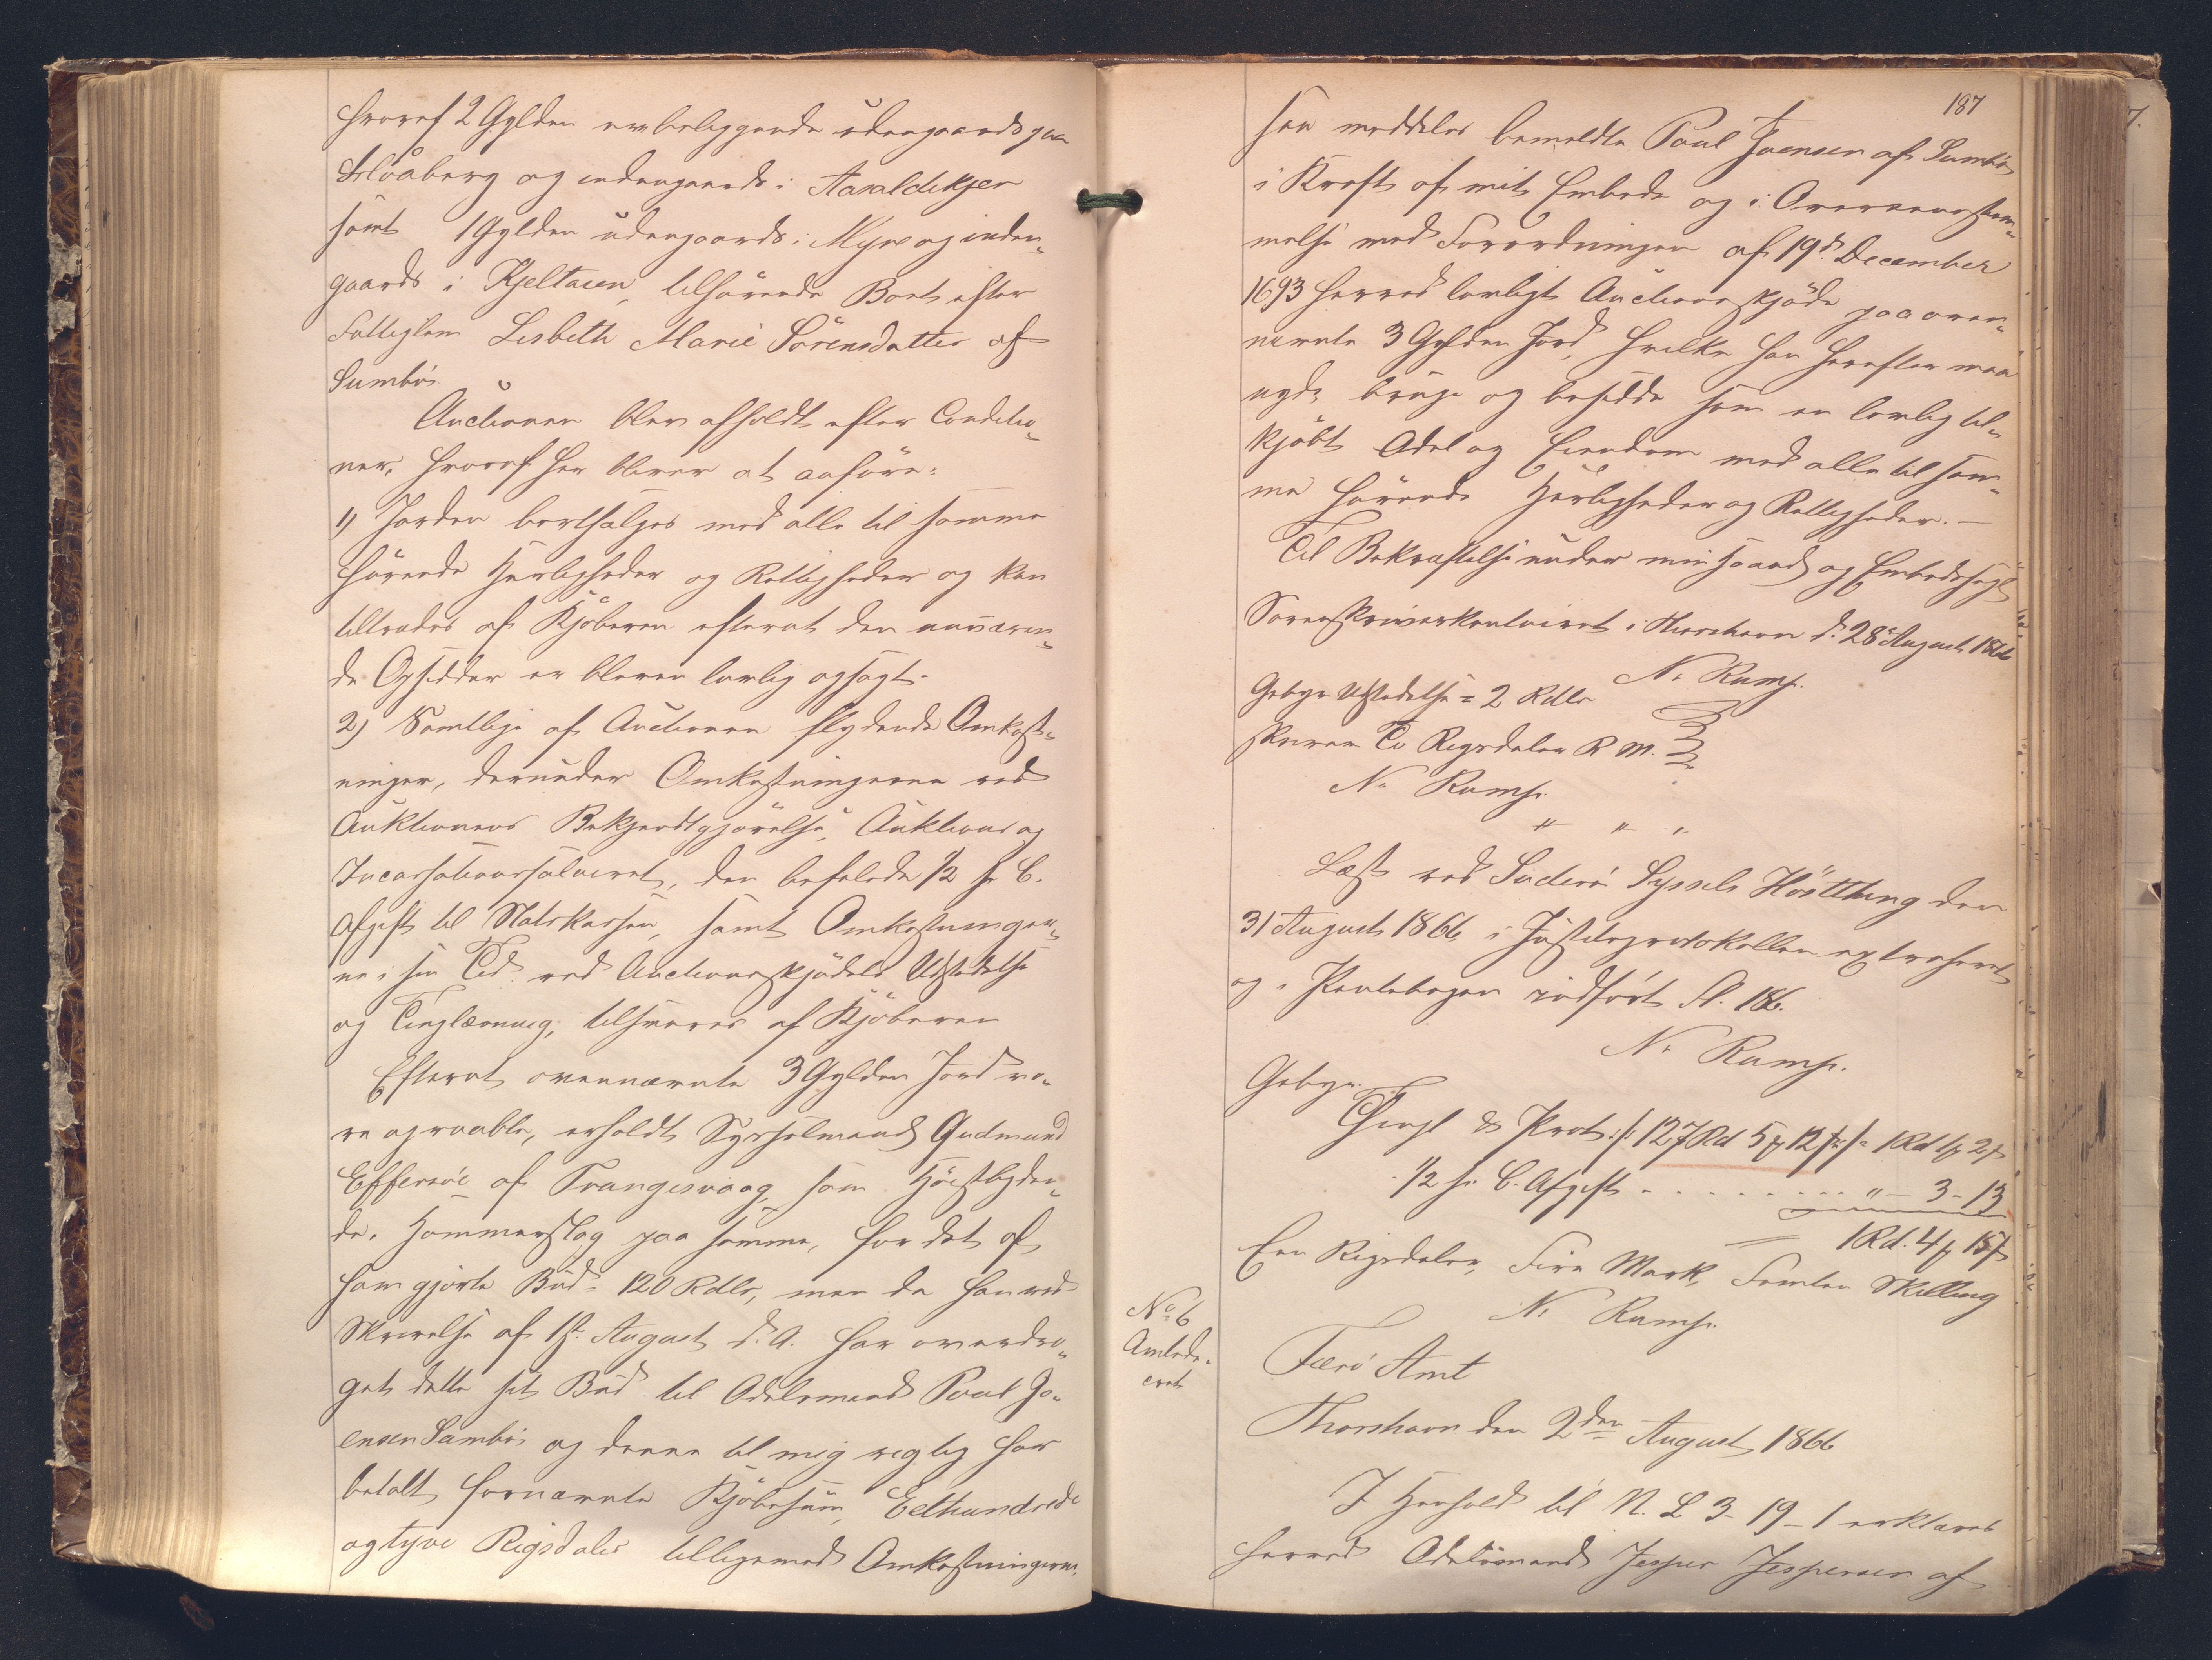 hvoraf 2 Gylden ere beliggende udengaards paa
Skloåberg og indengaards i Aasaldikjer
samt 1 Gylden udengaards i Myre og inden„
gaards i Kjeltasen, tilhørende Boet efter
Fattiglem Lisbeth Marie Sörensdatter af
Sumbö.
Auctionen blev afholdt efter Conditio„
ner, hvoraf her bliver at anføre:
1) Jorden bortsælges med alle til samme
hørende Herligheder og Rettigheder og kan
tiltrædes af Kjøberen efterat den nuværen„
de Opsidder er bleven lovlig opsagt.
2) Samtlige af Auctionen flydende Omkost„
ninger, derunder Omkostningerne ved
Auktionens Bekjendtgjørelse, Auktions og
Incassationssalairet, den befalede 1/2 pr C.
Afgift til Statskassen, samt Omkostninger„
ne i sin Tid ved Auctionsskjødets Udstedelse
og Tinglæsning, tilsvares af Kjøberen
Efterat ovennævnte 3 Gylden Jord va„
re opraabte, erholdt Sysselmand Gudmund
Effersöe af Trangisvaag, som Høistbyden„
de, Hammerslag paa samme, for det af
ham gjorte Bud = 120 Rdlr, men da han ved
Skrivelse af 1ste August d. A. har overdra„
get dette sit Bud til Odelsmand Poul Jo„
ensen Sumbö og denne til mig rigtig har
betalt fornævnte Kjøbesum, Eethundrede
og tyve Rigsdaler tilligemed Omkostningerne,
187
saa meddeles bemeldte Poul Joensen af Sumbö,
i Kraft af mit Embede og i Overeensstem„
melse med Forordningen af 19d. December
1693 herved lovligt Auctionsskjøde paa oven„
nævnte 3 Gylden Jord, hvilke han herefter maa
nyde, bruge og besidde som en lovlig til„
kjøbt Odel og Eiendom med alle til sam„
me hørende Herligheder og Rettigheder. —
Til Bekræftelse under min Haand og Embedssegl
Sorenskriverkontoiret i Thorshavn d. 28 August 1866
N. Rump.
Gebyr Udstedelse = 2 Rdlr
skriver To Rigsdaler R. M.
N. Rump.
" " "
Læst ved Suderö Syssels Höstthing den
31 August 1866, i Justitsprotokollen extraheret
og i Pantebogen indført Fol. 186.
N. Rump.
Gebyr.
Thingl & Prot. /: 127 Rd 5 ₰ 12 ß :/ = 1 Rd 1 ₰ 2 ß
1/2 pr. C. Afgift . . . . . . . . . " – 3 – 13
1 Rd. 4 ₰ 15 ß
Een Rigsdaler, Fire Mark, Femten Skilling
N. Rump.
No 6
Amtsde„
cret
Færö Amt
Thorshavn den 2den August 1866
I Henhold til N. L 3-19-1 erklæres
herved Odelsmand Jesper Jespersen af